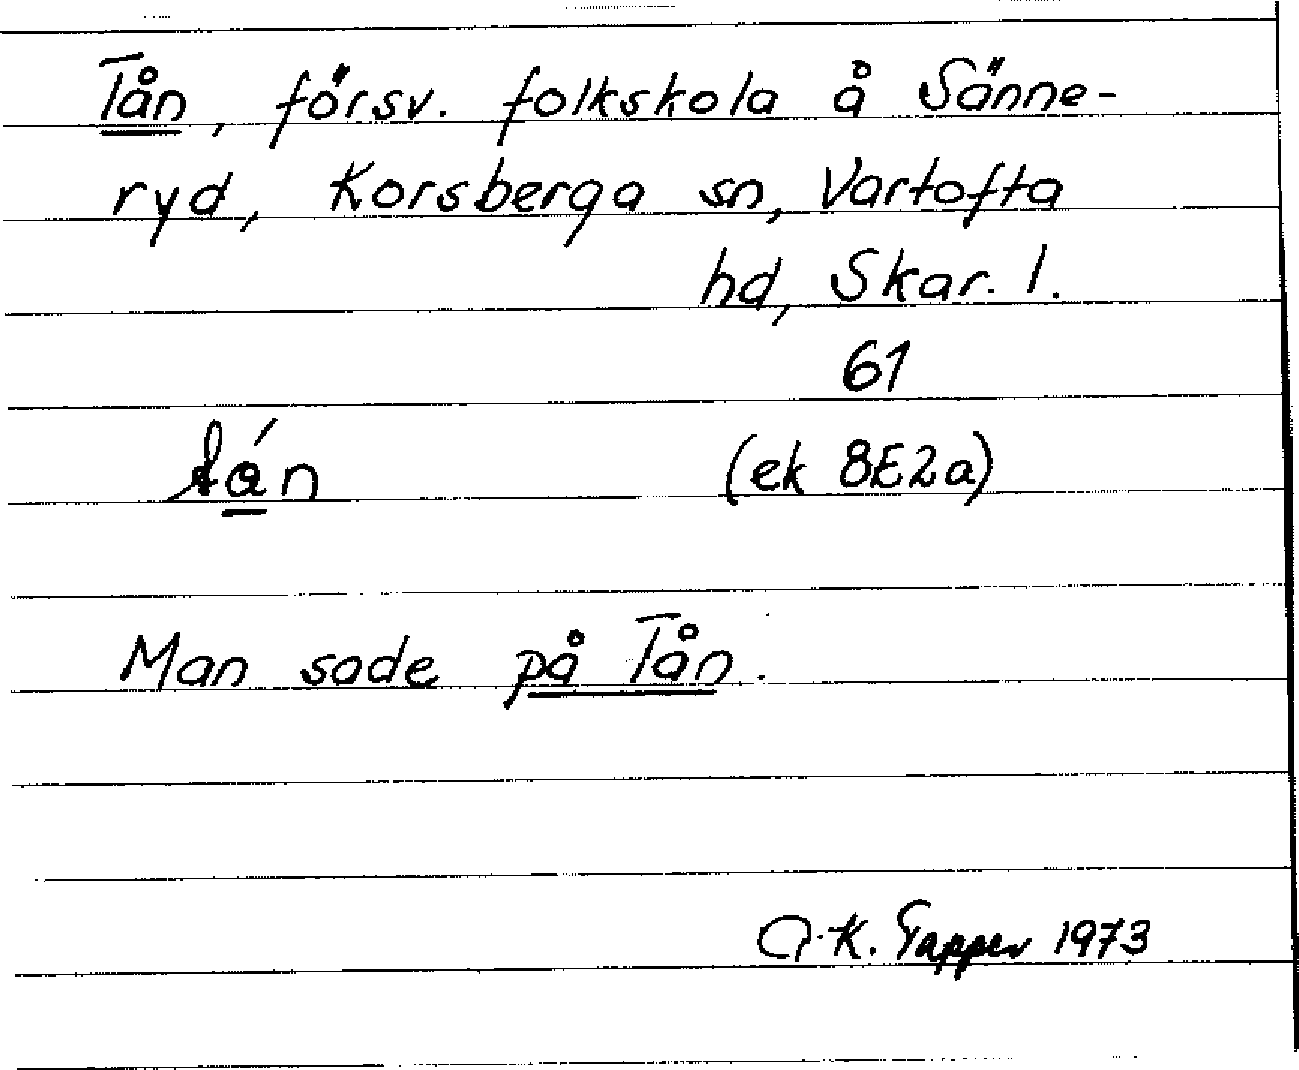 Tån, försv. folkskola å Sänne-
ryd, Korsberga sn, Vartofta
hd, Skar. l.
61
(ek 8E2a)
Man sade på Tån.
A.K. Tapper 1973